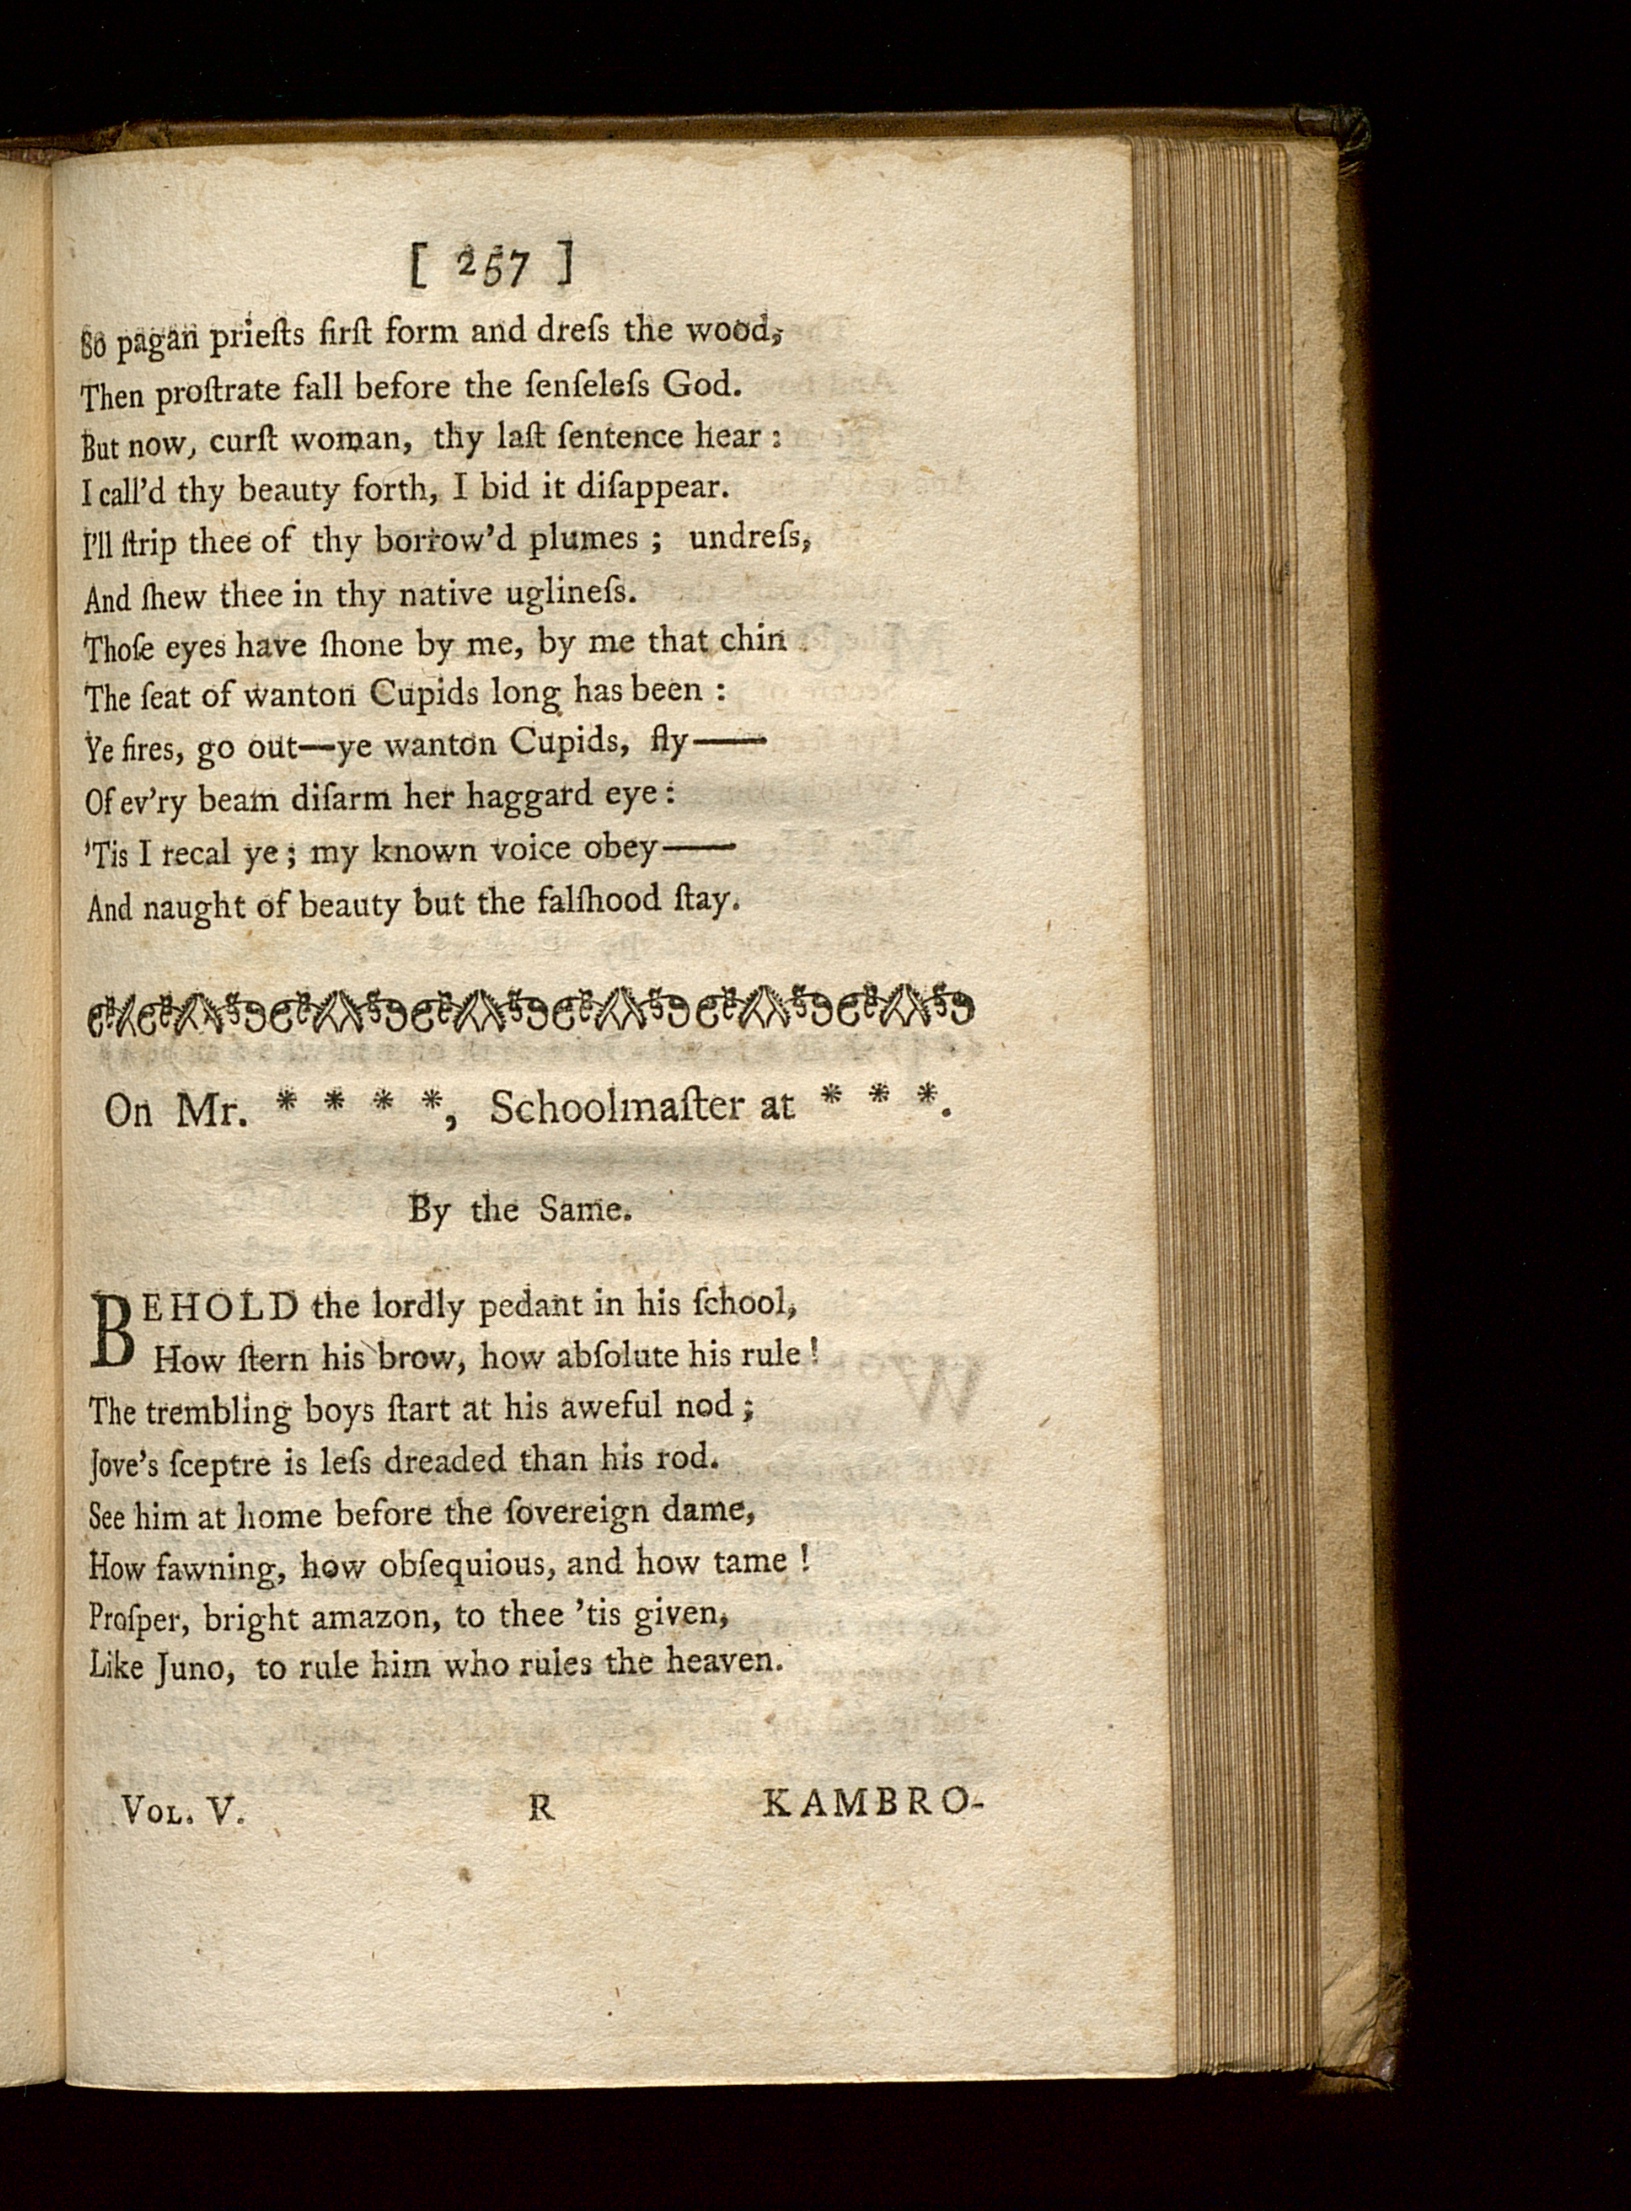 [ 257 ]
So pagan prieſts firſt form and dreſs the wood,
Then proſtrate fall before the ſenſeleſs God.
But now, curſt woman, thy laſt ſentence hear :
I call'd thy beauty forth, I bid it diſappear.
I'll ſtrip thee of thy borrow'd plumes ; undreſs,
And ſhew thee in thy native uglineſs.
Thoſe eyes have ſhone by me, by me that chin
The ſeat of wanton Cupids long has been :
Ye fires, go out—ye wanton Cupids, fly——
Of ev'ry beam diſarm her haggard eye :
'Tis I recal ye ; my known voice obey——
And naught of beauty but the falſhood ſtay.
On Mr. * * * *, Schoolmaſter at * * *.
By the Same.
BEHOLD the lordly pedant in his ſchool,
How ſtern his brow, how abſolute his rule !
The trembling boys ſtart at his aweful nod ;
Jove's ſceptre is leſs dreaded than his rod.
See him at home before the ſovereign dame,
How fawning, how obſequious, and how tame !
Proſper, bright amazon, to thee 'tis given,
Like Juno, to rule him who rules the heaven.
VOL. V. R KAMBRO-